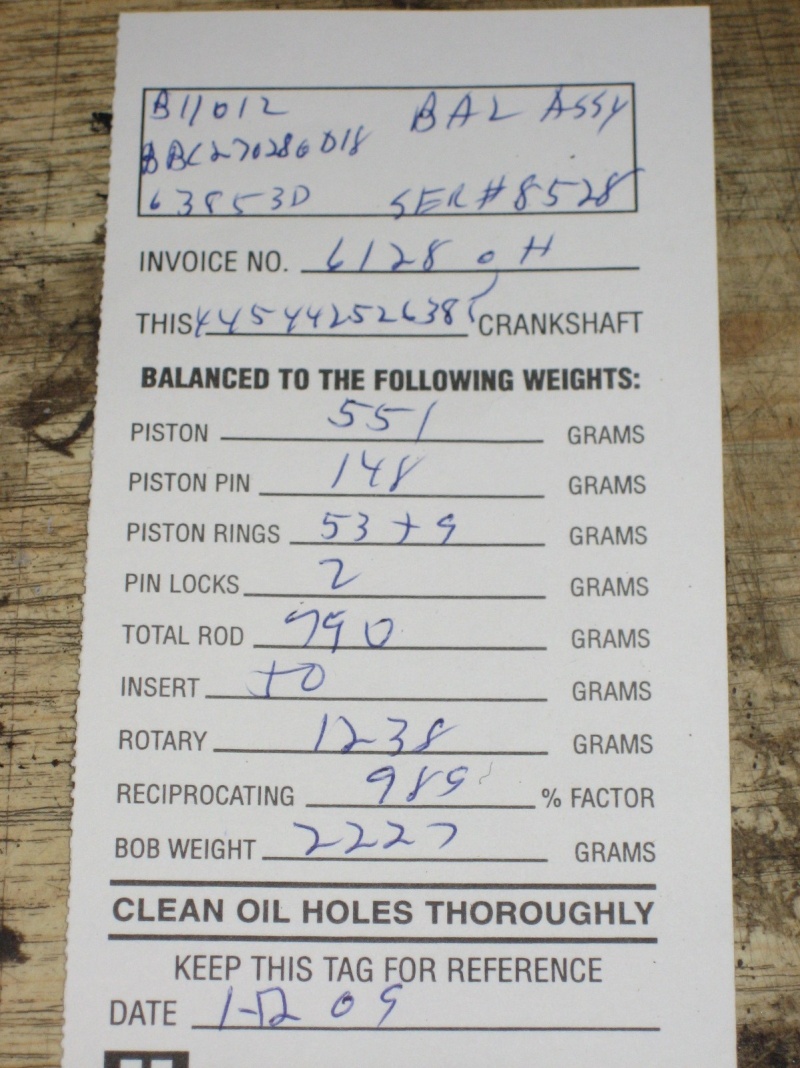 B11012 BAL ASSY
BBC270286D18
63853D SER#8528
INVOICE NO. 6128 OH
THIS CRANKSHAFT
BALANCED TO THE FOLLOWING WEIGHTS:
PISTON 551 GRAMS
PISTON PIN 148 GRAMS
PISTON RINGS 53+9 GRAMS
PIN LOCKS 2 GRAMS
TOTAL ROD 790 GRAMS
INSERT GRAMS
ROTARY 1238 GRAMS
RECIPROCATING 989 % FACTOR
BOB WEIGHT 2227 GRAMS
CLEAN OIL HOLES THOROUGHLY
KEEP THIS TAG FOR REFERENCE
DATE 1-12 09